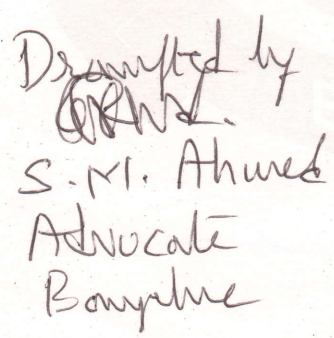 Drafted by
S. M. Ahmed
Advocate
Bangalore